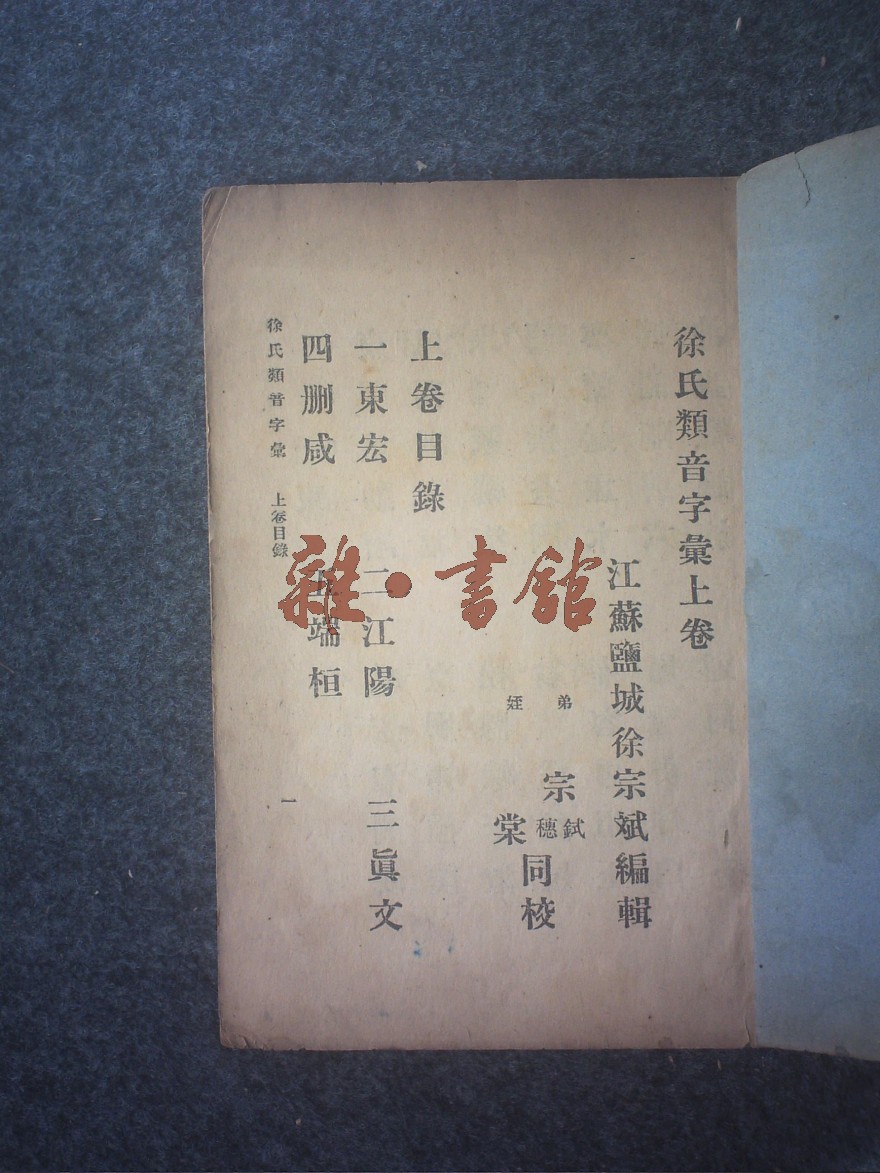 徐氏類音字彙上卷
江蘇鹽城徐宗斌編輯
弟 宗鉽穗
姪 棠
同校
上卷目錄
一東宏 二江陽 三眞文
四刪咸 五端桓
徐氏類音字彙 上卷目錄 一
雜·書館